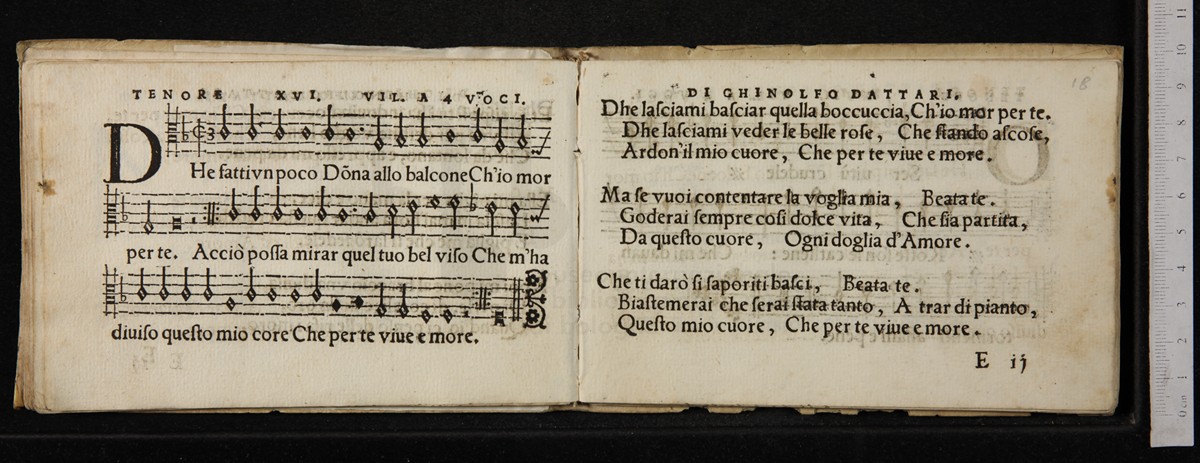 TENORE XVI. VIL. A 4 VOCI.
DHe fattivn poco Dõna allo balcone Ch'io mor
per te. Acciò possa mirar quel tuo bel viso Che m'ha
diuiso questo mio core Che per te viue e more.
DI GHINOLFO DATTARI.
18
Dhe lasciami basciar quella boccuccia, Ch'io mor per te.
Dhe lasciami veder le belle rose, Che stando ascose,
Ardon'il mio cuore, Che per te viue e more.
Ma se vuoi contentare la voglia mia, Beata te.
Goderai sempre così dolce vita, Che sia partita,
Da questo cuore, Ogni doglia d'Amore.
Che ti darò si saporiti basci, Beata te.
Biastemerai che serai stata tanto, A trar di pianto,
Questo mio cuore, Che per te viue e more.
E ij
0 cm 1 2 3 4 5 6 7 8 9 10 11